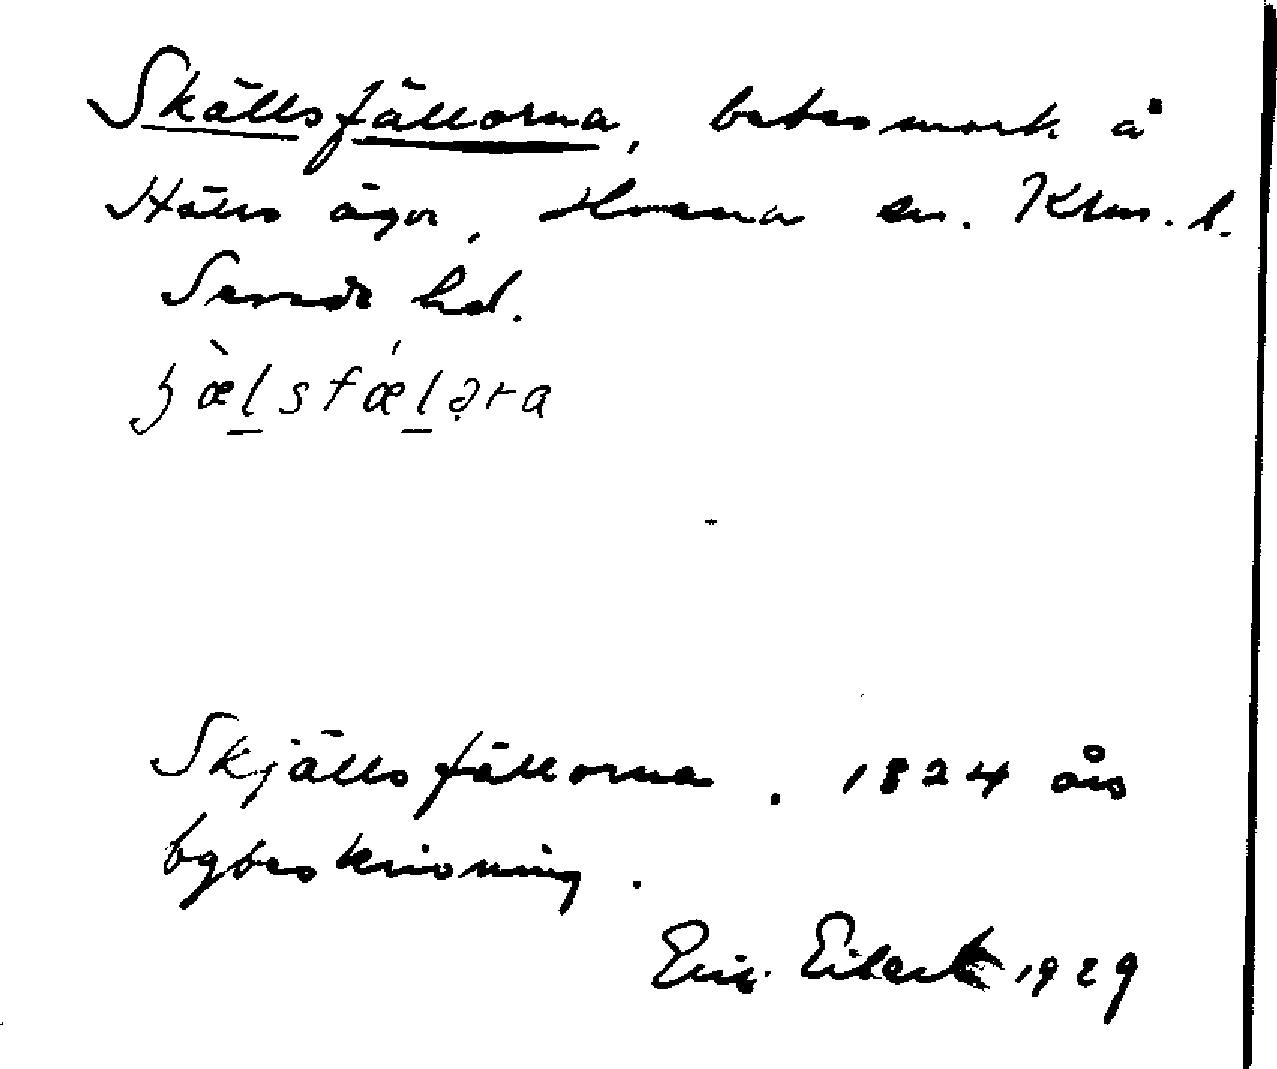 Skällsfällorna, betesmark å
Hälls ägor, Hosena sn. Klm. l.
Sevede hd.
Skjällsfällorna. 1824 års
bybeskrivning.
Erik Eibert 1929